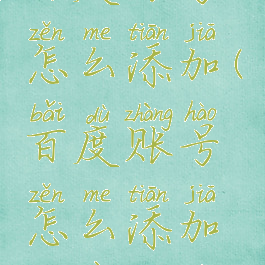 zěn me tiān jiā
怎么添加(
bǎi dù zhàng hào
百度账号
zěn me tiān jiā
怎么添加